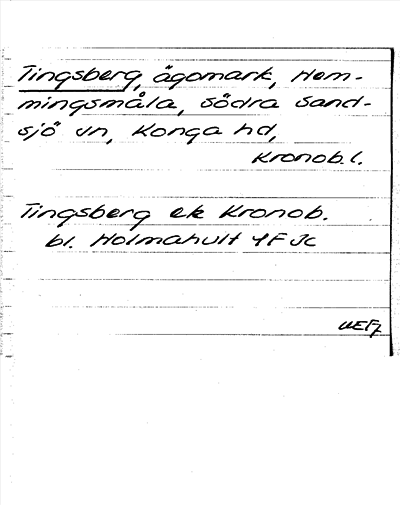 Tingsberg, ägomark, Hem-
mingsmåla, Södra Sand-
sjö sn, Konga hd,
Kronob. l.
Tingsberg ek Kronob.
bl. Holmahult 4F Jc